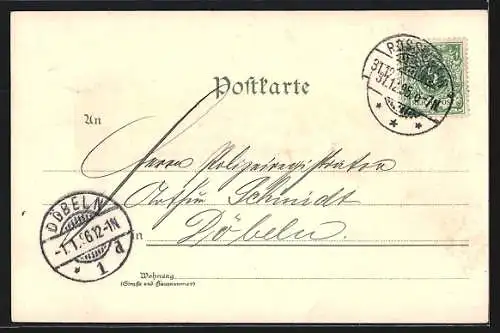 Postkarte
31.12.95.6-7N
An
Herrn Polizeiregistrator
Arthur Schmidt
in
Döbeln.
DÖBELN
-1.1.96.12-1N
* 1 d
Wohnung
(Straße und Hausnummer)